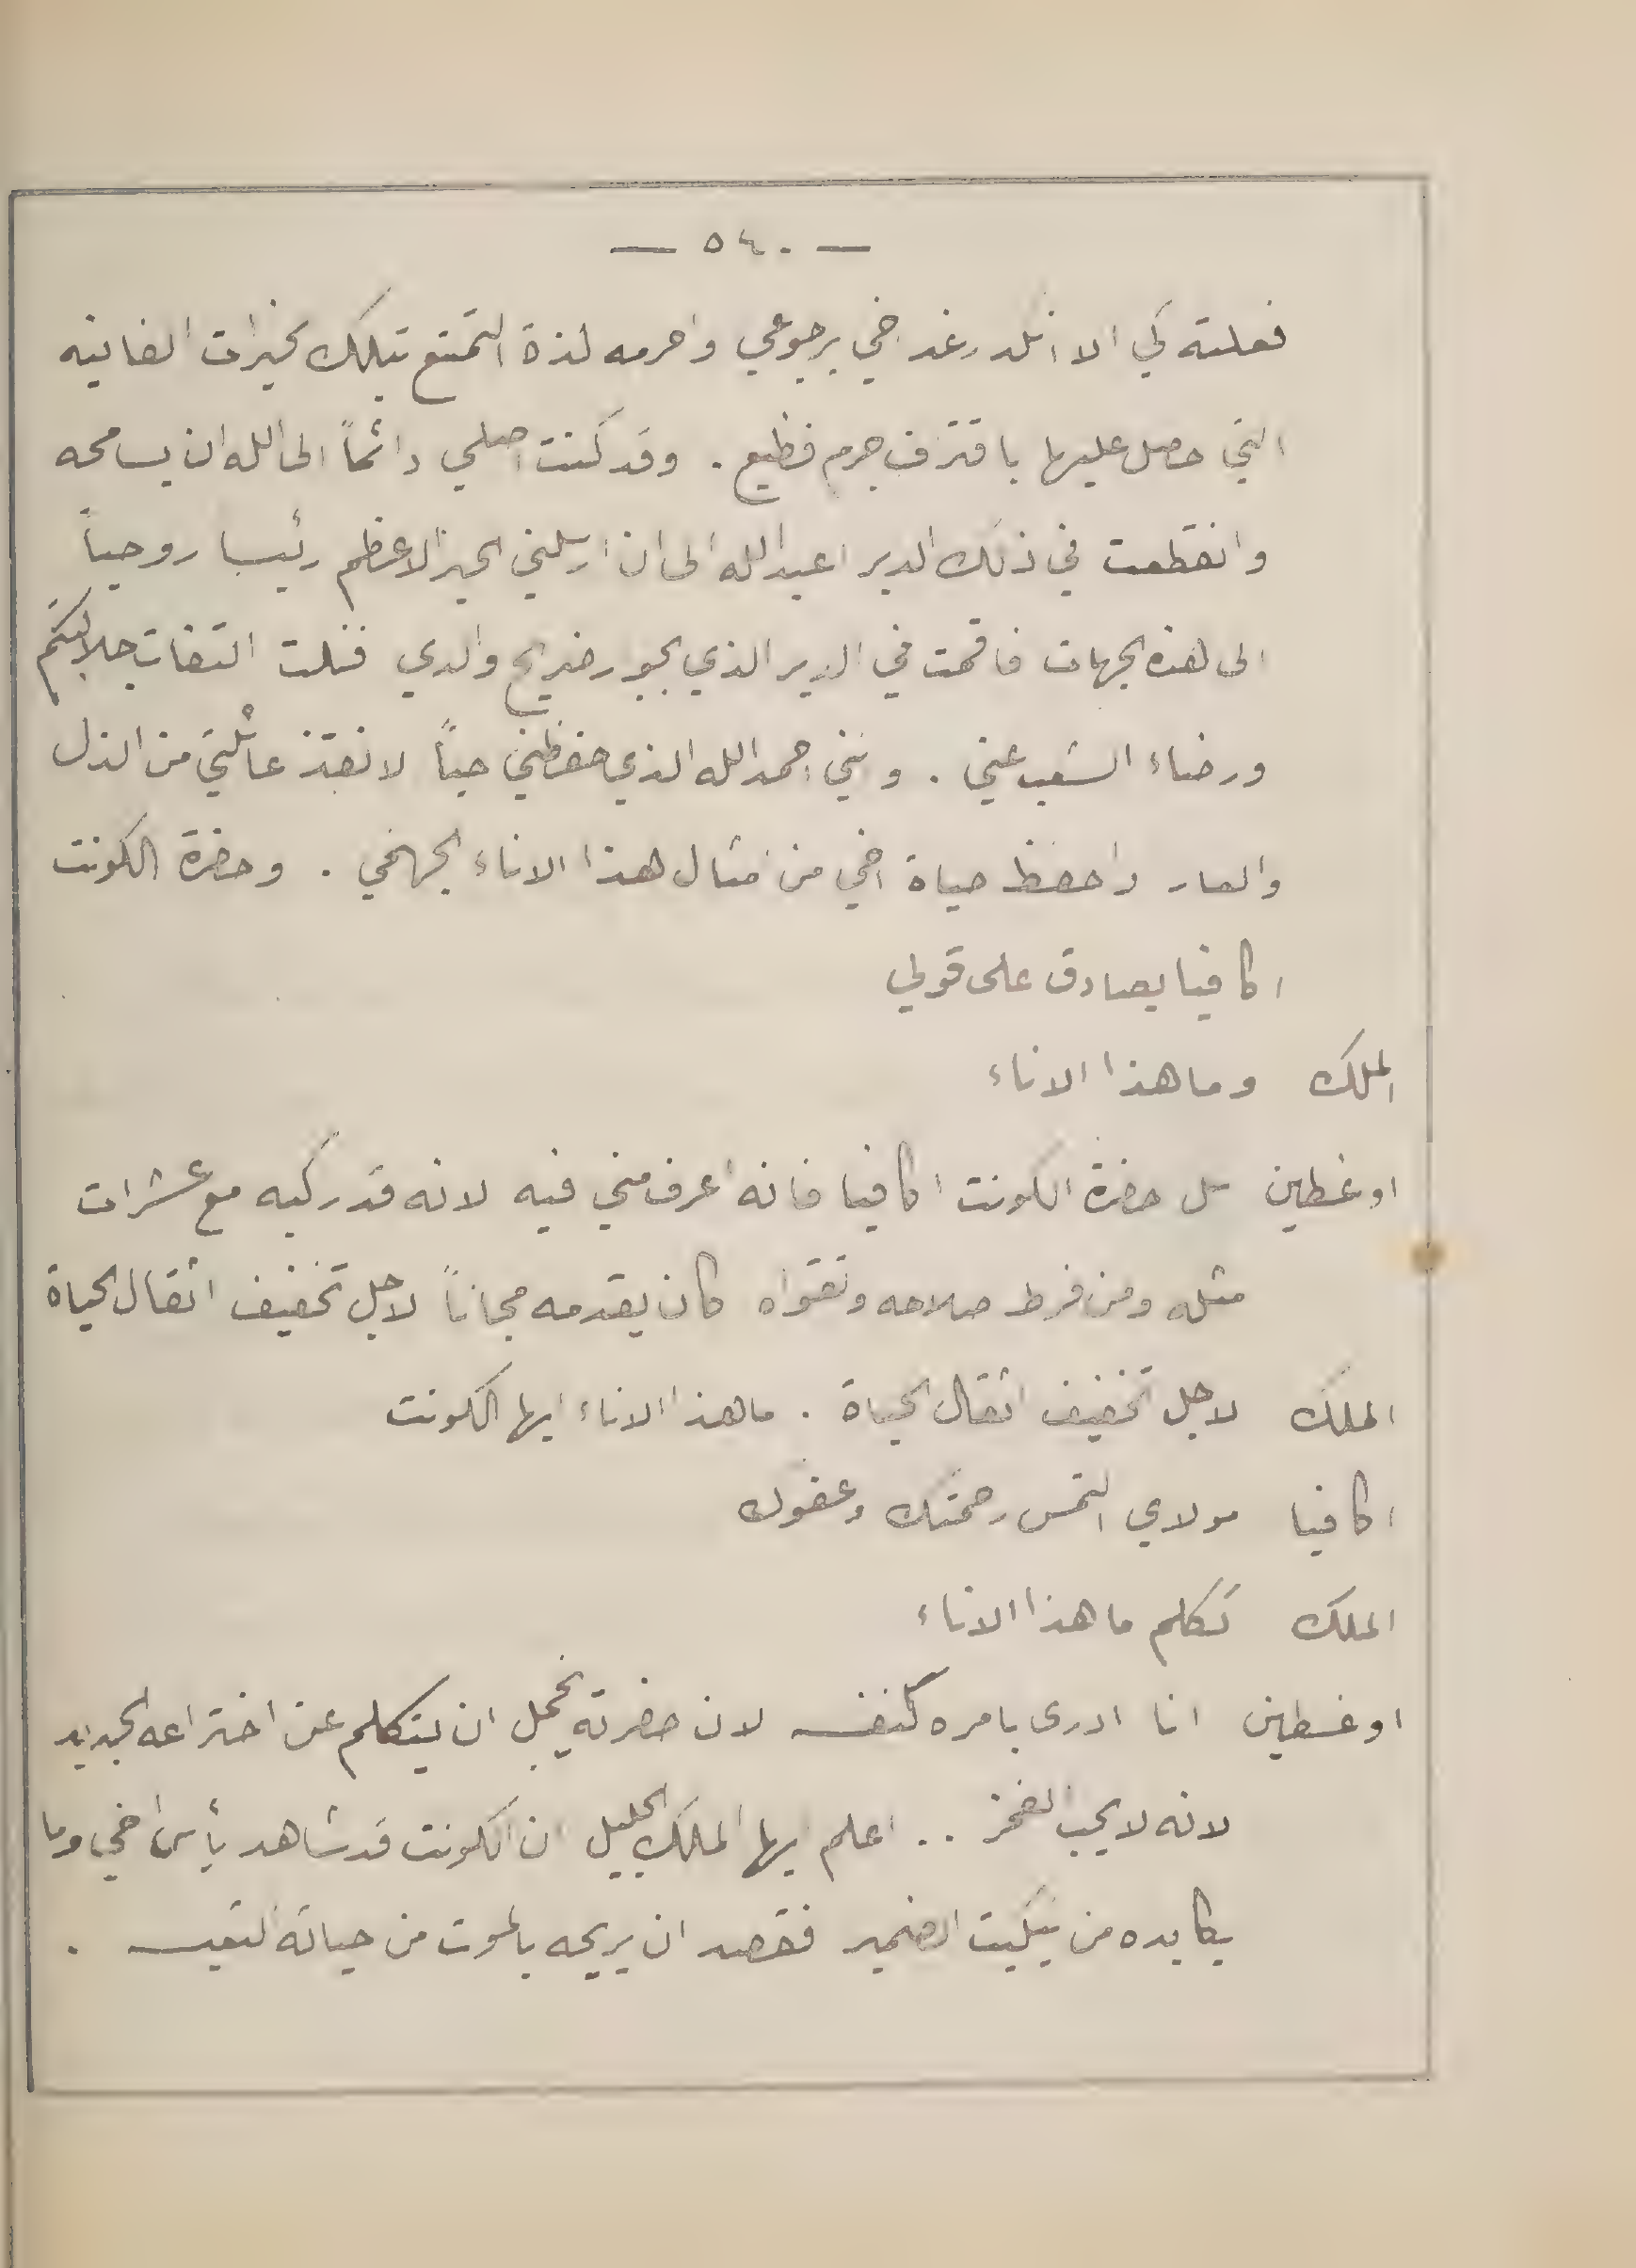 — ٥٤٠ —
فعلته لكي الا انكد رغد اخي برجوعي واحرمه لذة التمتع بتلك الخيرات الفانيه
التي حصل عليها باقتراف جرم فظيع . وقد كنت اصلي دائماً الى الله ان يسامحه
وانقطعت في ذلك الدير اعبد الله الى ان ارسلني الحبر الاعظم رئيسا روحياً
الى هذه الجهات فاقمت في الدير الذي بجوار ضريح والدي فنلت التفات جلالتكم
ورضاء الشعب عني . وانني احمد الله الذي حفظني حياً لانقذ عائلتي من الذل
والعار واحفظ حياة اخي من مثال هذا الاناء الجهنمي . وحضرة الكونت
اكافيا يصادق على قولي
الملك وما هذا الاناء
اوغسطين سل حضرة الكونت اكافيا فانه اعرف مني فيه لانه قد ركبه مع عشرات
مثله ومن فرط صلاحه وتقواه كان يقدمه مجاناً لاجل تخفيف اثقال الحياة
الملك لاجل تخفيف اثقال الحياة . ما هذا الاناء ايها الكونت
اكافيا مولاي التمس رحمتك وعفوك
الملك تكلم ما هذا الاناء
اوغسطين انا ادرى بامره كنفسه لان حضرته يخجل ان يتكلم عن اختراعه الجديد
لانه لا يحب الفخر .. اعلم ايها الملك الجليل ان الكونت قد شاهد يأس اخي وما
يكابده من تبكيت الضمير فقصد ان يريحه بالموت من حياته التعيسه .